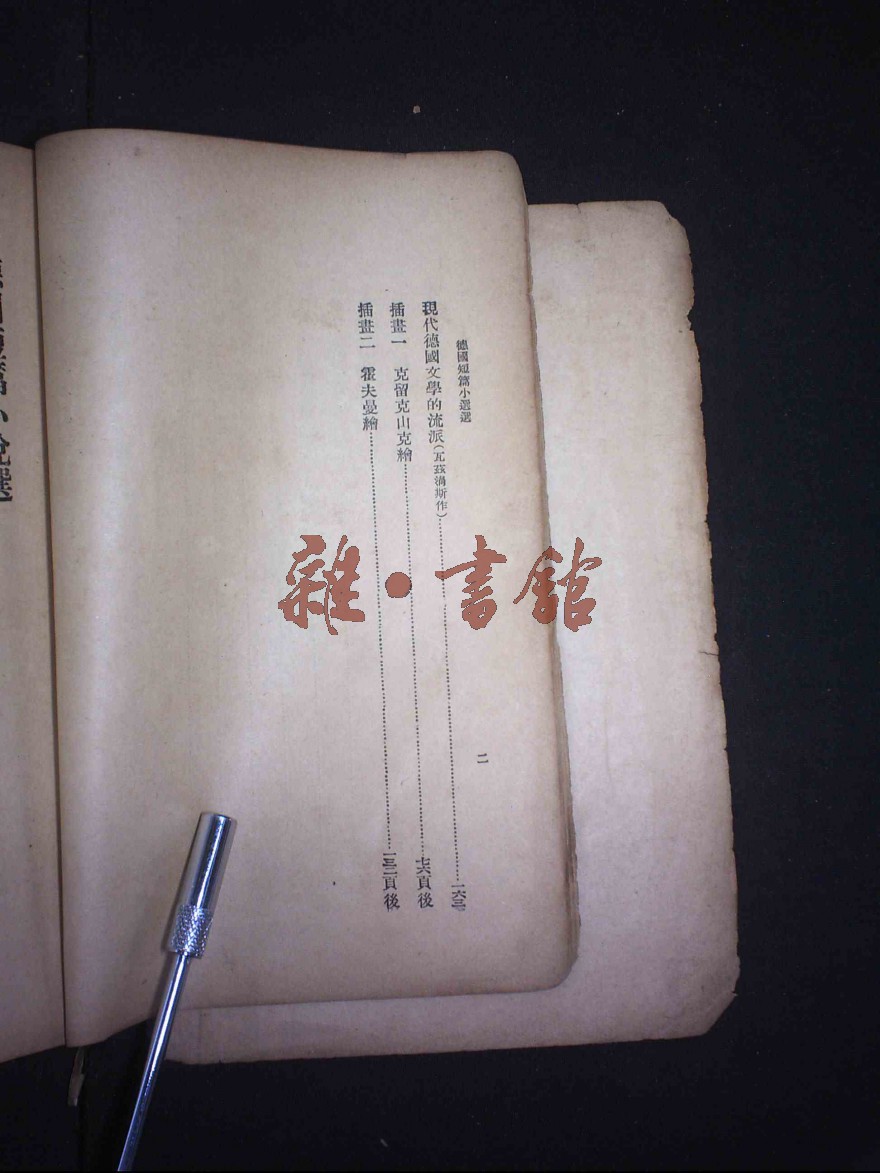 德國短篇小選選
二
現代德國文學的流派(瓦茲渦斯作)……一六三
插畫一 克留克山克繪……七六頁後
插畫二 霍夫曼繪……一三二頁後
雜•書館